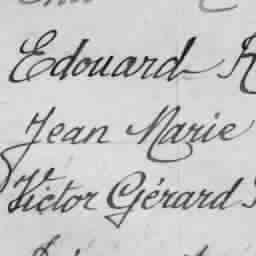 Edouard
Jean Marie
Victor Gérard